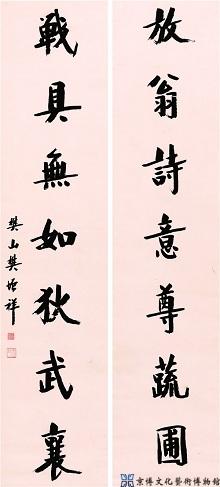 放翁詩意尊蔬圃
戰具無如狄武襄
樊山樊增祥
京博文化藝術博物館